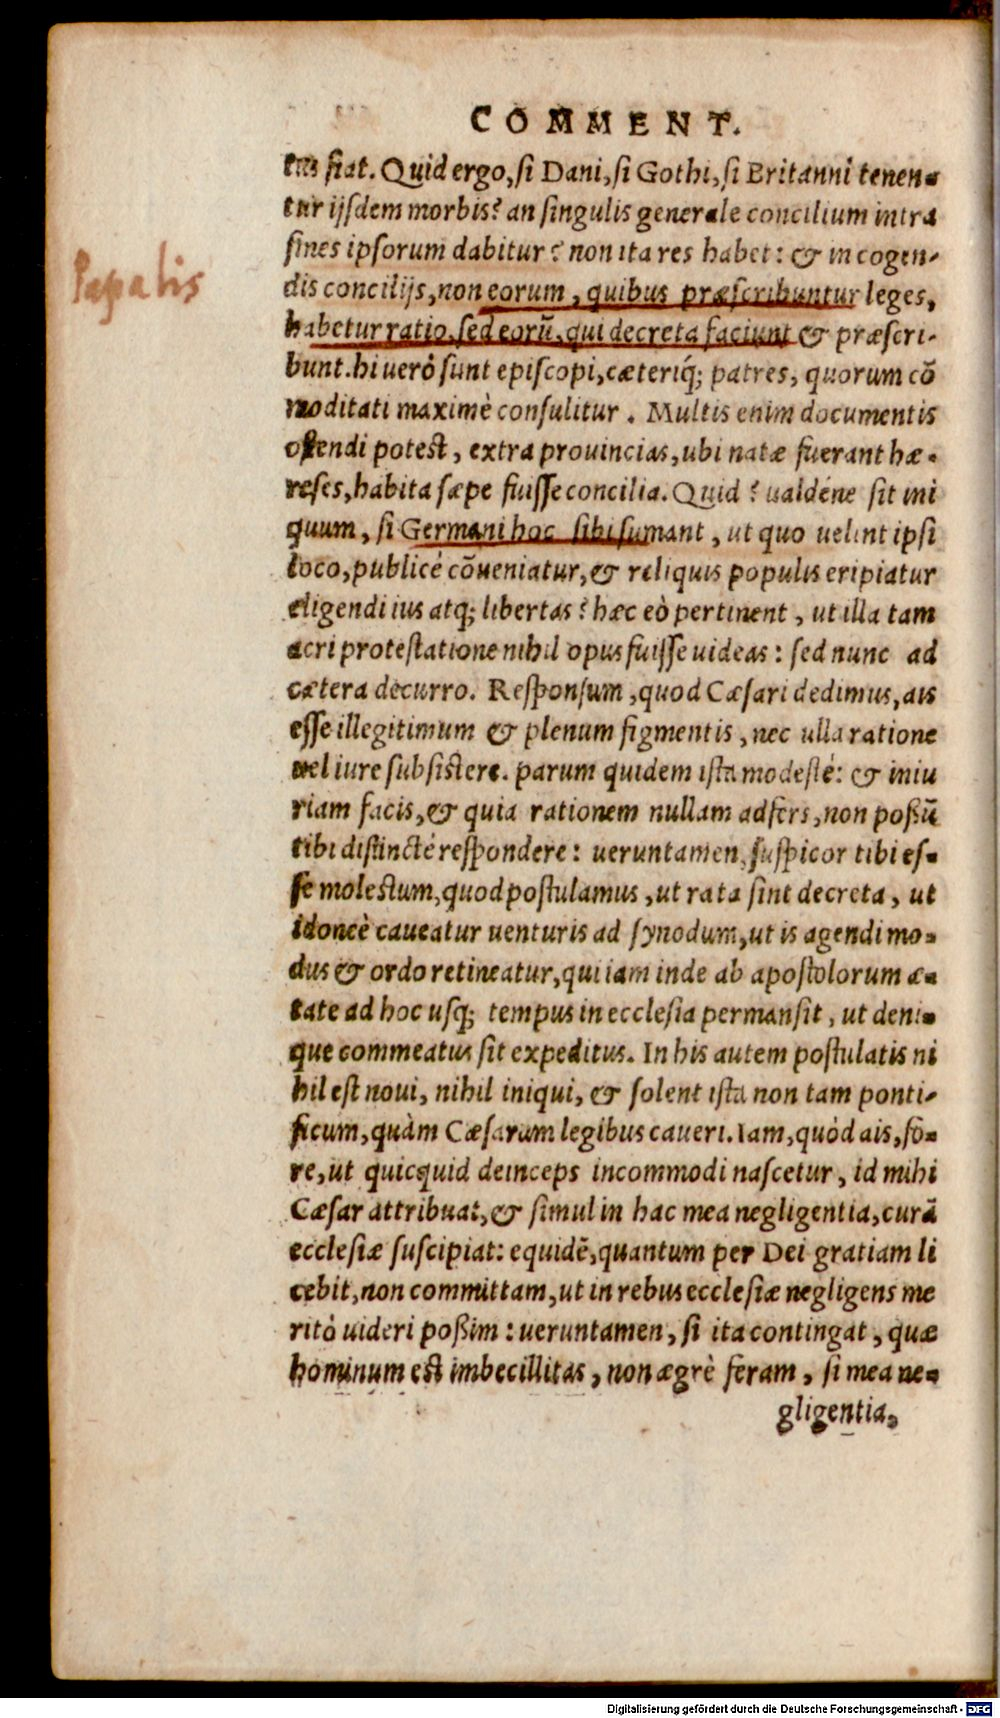 COMMENT.
tus fiat. Quid ergo, si Dani, si Gothi, si Britanni tenen-
tur ijsdem morbis? an singulis generale concilium intra
fines ipsorum dabitur? non ita res habet: & in cogen-
Papalis
dis concilijs, non eorum, quibus præscribuntur leges,
habetur ratio, sed eorũ, qui decreta faciunt & præscri-
bunt. hi uerò sunt episcopi, cæteriq́; patres, quorum cõ
moditati maximè consulitur. Multis enim documentis
ostendi potest, extra prouincias, ubi natæ fuerant hæ-
reses, habita sæpe fuisse concilia. Quid? ualdéne sit ini
quum, si Germani hoc sibi sumant, ut quo uelint ipsi
loco, publicé cõueniatur, & reliquis populis eripiatur
eligendi ius atq; libertas? hæc eò pertinent, ut illa tam
acri protestatione nihil opus fuisse uideas: sed nunc ad
cætera decurro. Responsum, quod Cæsari dedimus, ais
esse illegitimum & plenum figmentis, nec ulla ratione
uel iure subsistere. parum quidem ista modesté: & iniu
riam facis, & quia rationem nullam adfers, non poßũ
tibi distincté respondere: ueruntamen, suspicor tibi es-
se molestum, quod postulamus, ut rata sint decreta, ut
idoneè caueatur uenturis ad synodum, ut is agendi mo-
dus & ordo retineatur, qui iam inde ab apostolorum æ-
tate ad hoc usq; tempus in ecclesia permansit, ut deni-
que commeatus sit expeditus. In his autem postulatis ni
hil est noui, nihil iniqui, & solent ista non tam ponti-
ficum, quàm Cæsarum legibus caueri. Iam, quòd ais, fo-
re, ut quicquid deinceps incommodi nascetur, id mihi
Cæsar attribuat, & simul in hac mea negligentia, curã
ecclesiæ suscipiat: equidẽ, quantum per Dei gratiam li
cebit, non committam, ut in rebus ecclesiæ negligens me
ritò uideri poßim: ueruntamen, si ita contingat, quæ
hominum est imbecillitas, non ægrè feram, si mea ne-
gligentia,
Digitalisierung gefördert durch die Deutsche Forschungsgemeinschaft - DFG